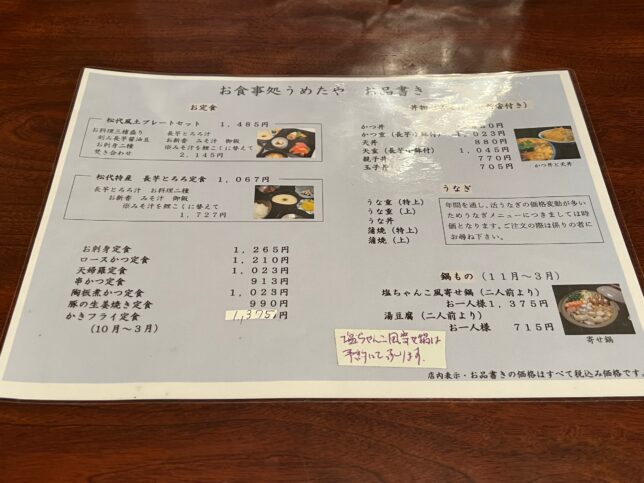 お食事処うめたや お品書き
お定食
松代風土プレートセット 1,485円
お料理三種盛り 長芋とろろ汁
刻み長芋醤油豆 お新香 みそ汁 御飯
お刺身二種 ※みそ汁を鯉こくに替えて
焚き合わせ 2,145円
松代特産 長芋とろろ定食 1,067円
長芋とろろ汁 お料理二種
お新香 みそ汁 御飯
※みそ汁を鯉こくに替えて
1,727円
お刺身定食 1,265円
ロースかつ定食 1,210円
天婦羅定食 1,023円
串かつ定食 913円
陶板煮かつ定食 1,023円
豚の生姜焼き定食 990円
かきフライ定食 1,375円
(10月~3月)
丼物
付き)
かつ丼 80円
かつ重(長芋小鉢付) 1,023円
天丼 880円
天重(長芋小鉢付) 1,045円
親子丼 770円
玉子丼 705円
かつ丼と天丼
うなぎ
うな重(特上)
うな重(上)
うな丼
蒲焼(特上)
蒲焼(上)
年間を通し、活うなぎの価格変動が多い
ためうなぎメニューにつきましては時
価となります。ご注文の際は係りの者に
お尋ね下さい。
鍋もの (11月~3月)
塩ちゃんこ風寄せ鍋(二人前より)
お一人様 1,375円
湯豆腐(二人前より)
お一人様 715円
寄せ鍋
塩ちゃんこ風寄せ鍋は
予約にて承ります。
店内表示・お品書きの価格はすべて税込み価格です。